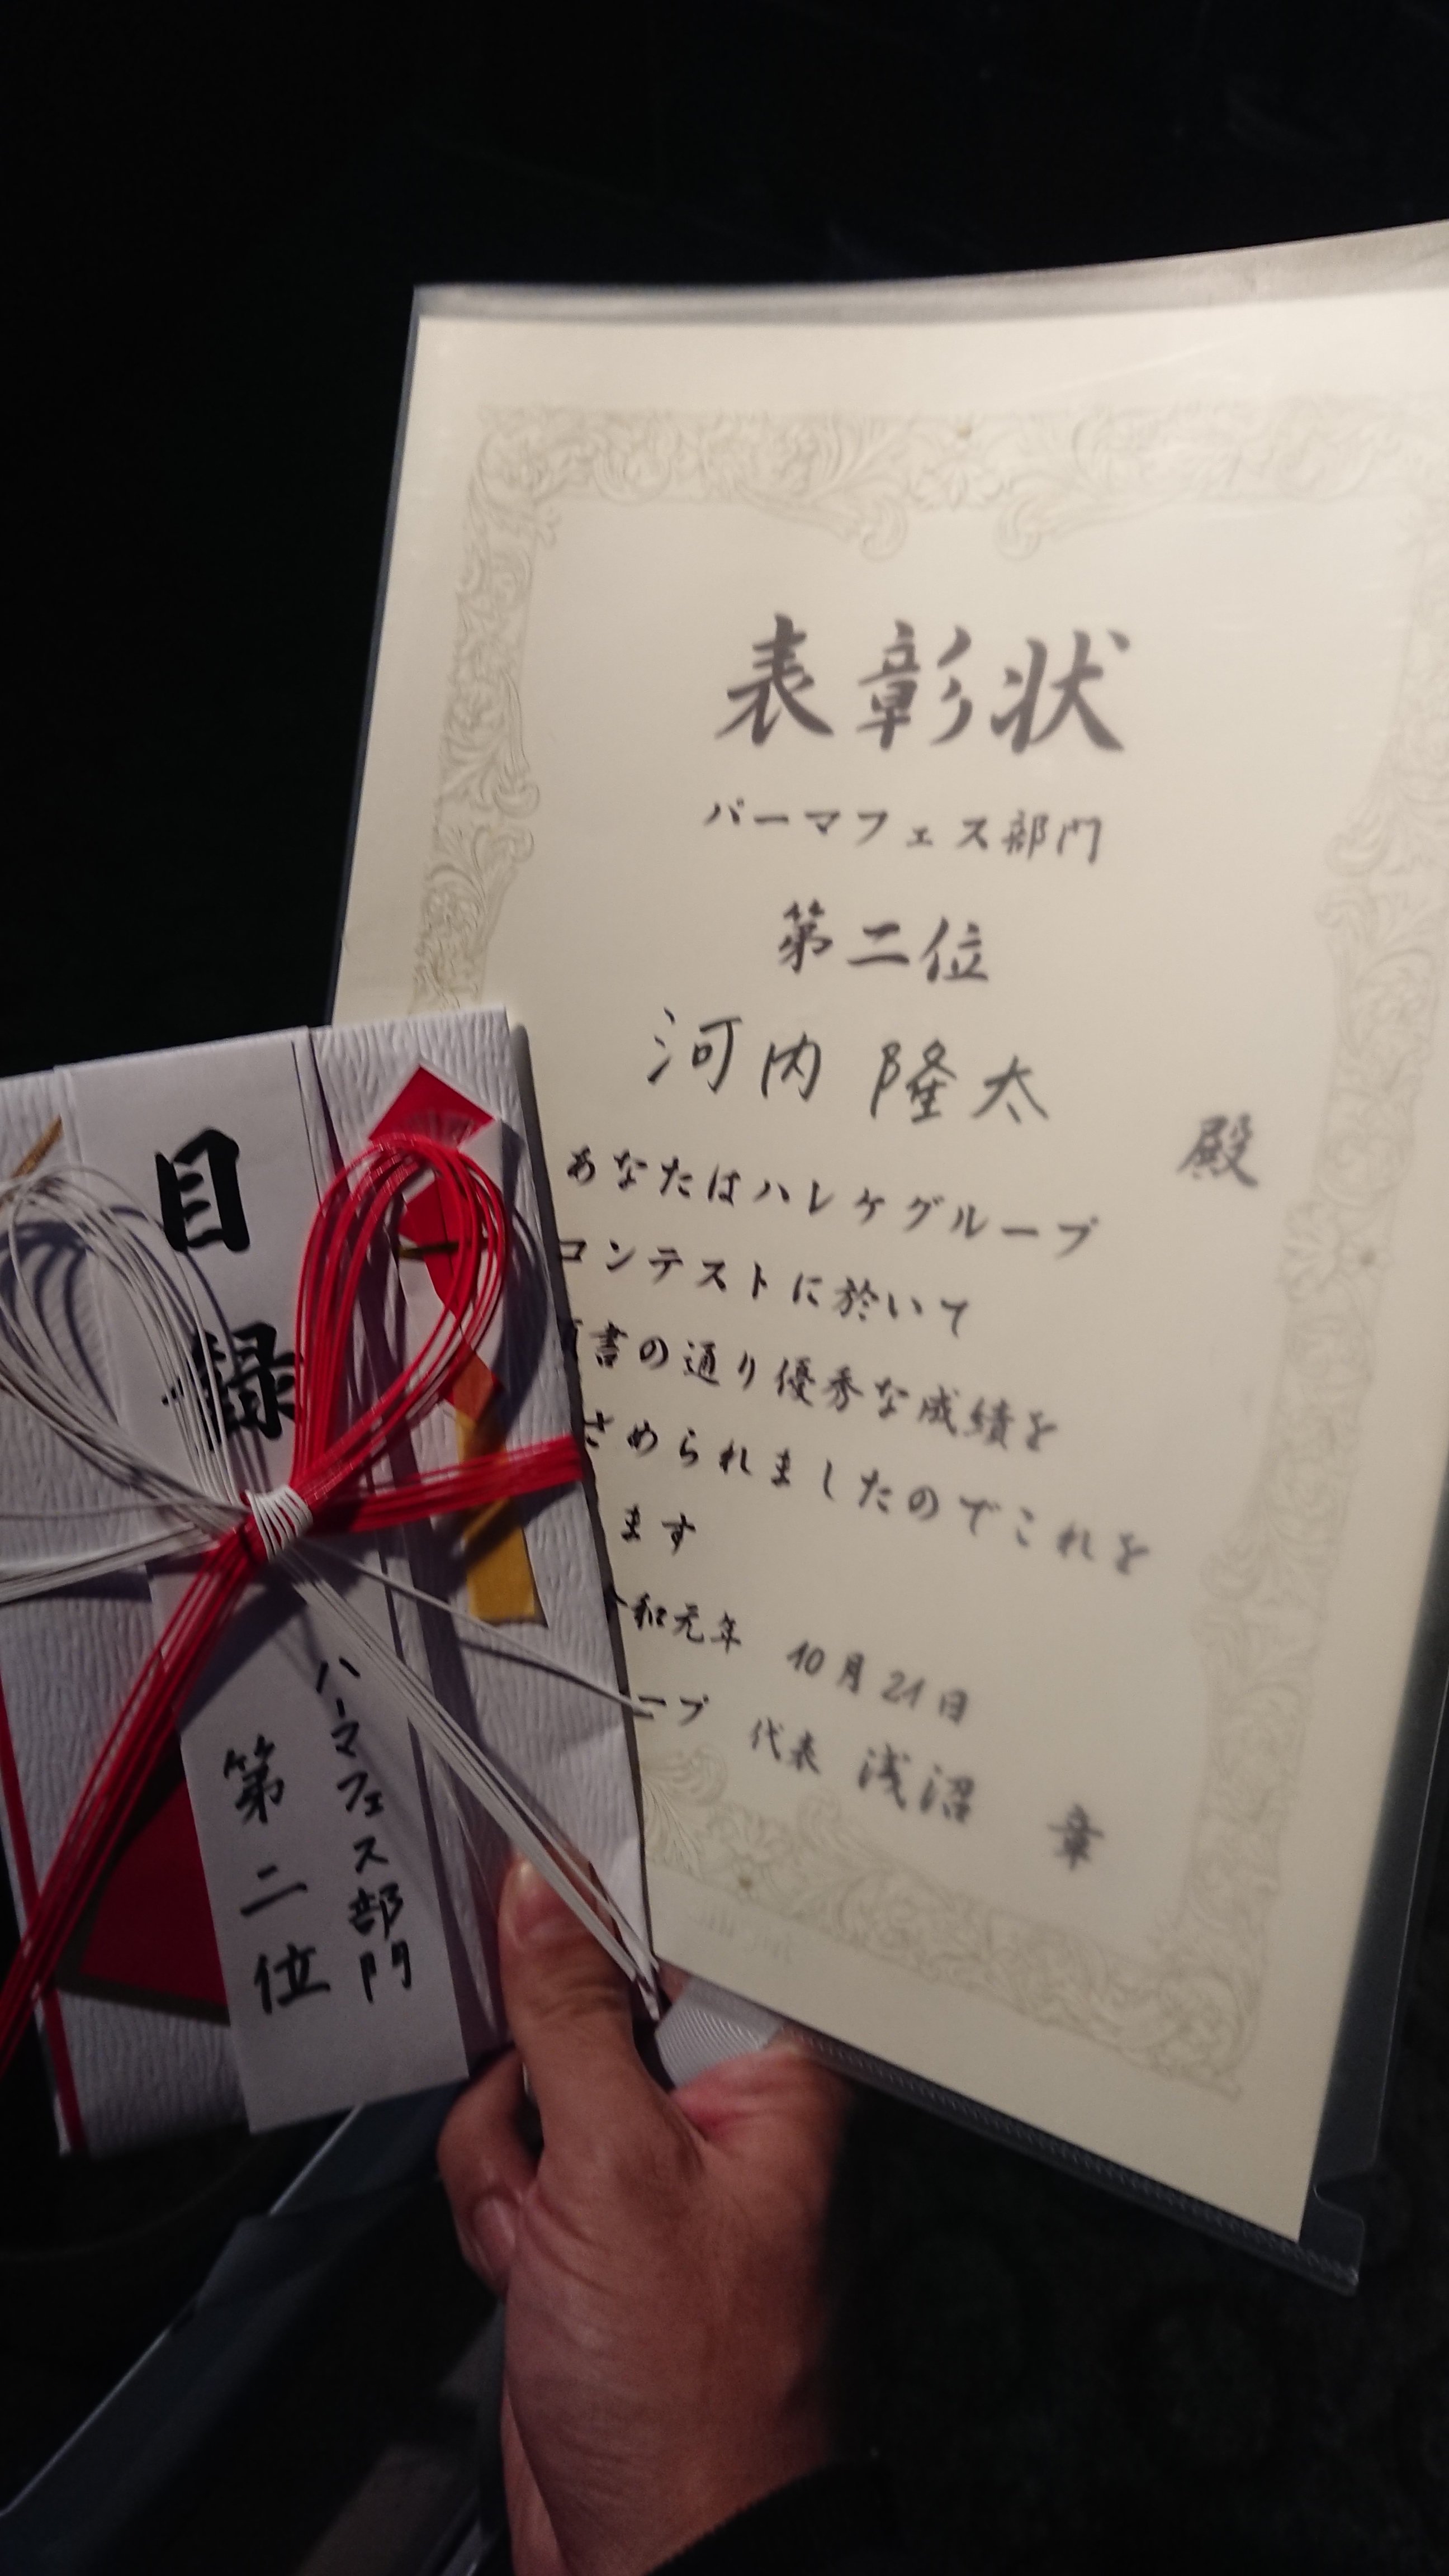 表彰状
パーマフェス部門
第二位
河内 隆太
殿
あなたはハレケグループ
コンテストに於いて
書の通り優秀な成績を
さめられましたのでこれを
ます
和元年 10月21日
ープ 代表 浅沼 章
目録
パーマフェス部門
第二位